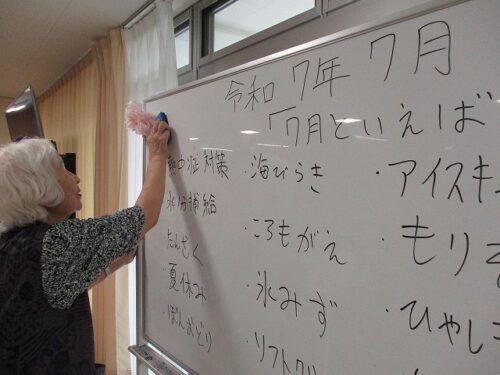 令和 7年 7月
「7月といえば
熱中症対策
水分補給
たんざく
・夏休み
・ぼんおどり
・海びらき
・ころもがえ
・氷みず
・ソフトク
・アイスキ
・もり
・ひやし